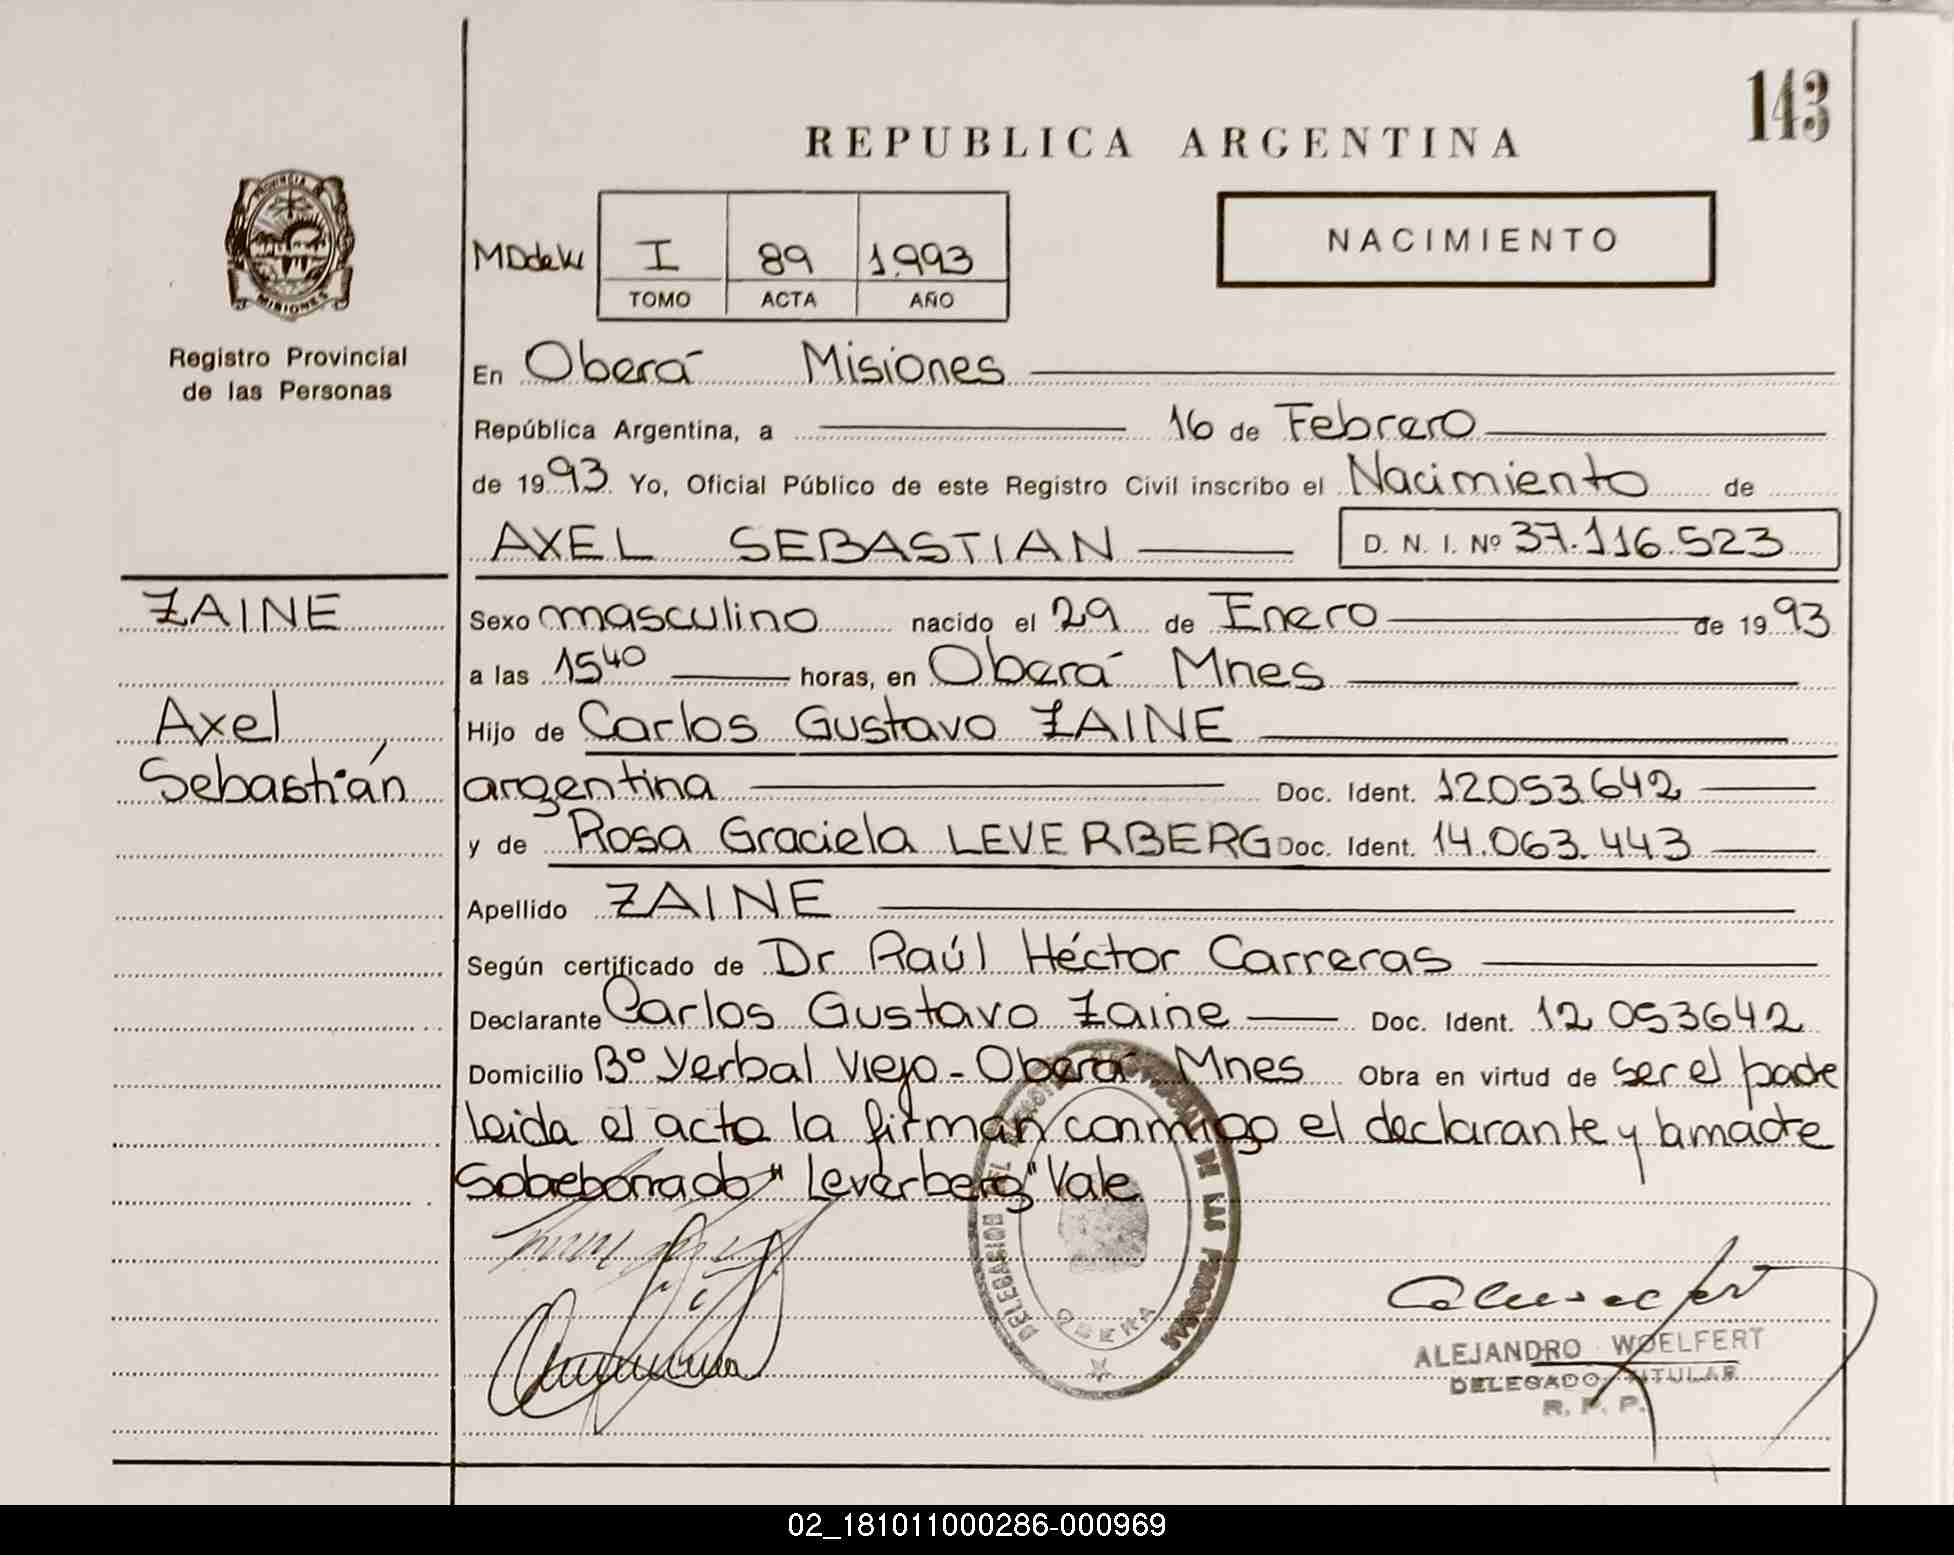 143
REPUBLICA ARGENTINA
PROVINCIA DE
MISIONES
Registro Provincial
de las Personas
I 89 1.993
TOMO ACTA AÑO
NACIMIENTO
En Oberá Misiones
República Argentina, a 16 de Febrero
de 1993 Yo, Oficial Público de este Registro Civil inscribo el Nacimiento de
AXEL SEBASTIAN D. N. I. Nº 37.116.523
ZAINE
Axel
Sebastián
Sexo masculino nacido el 29 de Enero de 1993
a las 15 40 horas, en Oberá Mnes
Hijo de Carlos Gustavo ZAINE
argentina Doc. Ident. 12053642
y de Rosa Graciela LEVERBERG Doc. Ident. 14.063.443
Apellido ZAINE
Según certificado de Dr Raúl Héctor Carreras
Declarante Carlos Gustavo Zaine Doc. Ident. 12 053642
Domicilio Bº Yerbal Viejo - Oberá Mnes Obra en virtud de ser el padre
leida el acta la firman conmigo el declarante y la madre
Sobreborrado "Leverberg" Vale
DELEGACION DEL REGISTRO PROVINCIAL DE LAS PERSONAS
OBERA
ALEJANDRO WOELFERT
DELEGADO TITULAR
R. P. P.
02_181011000286-000969